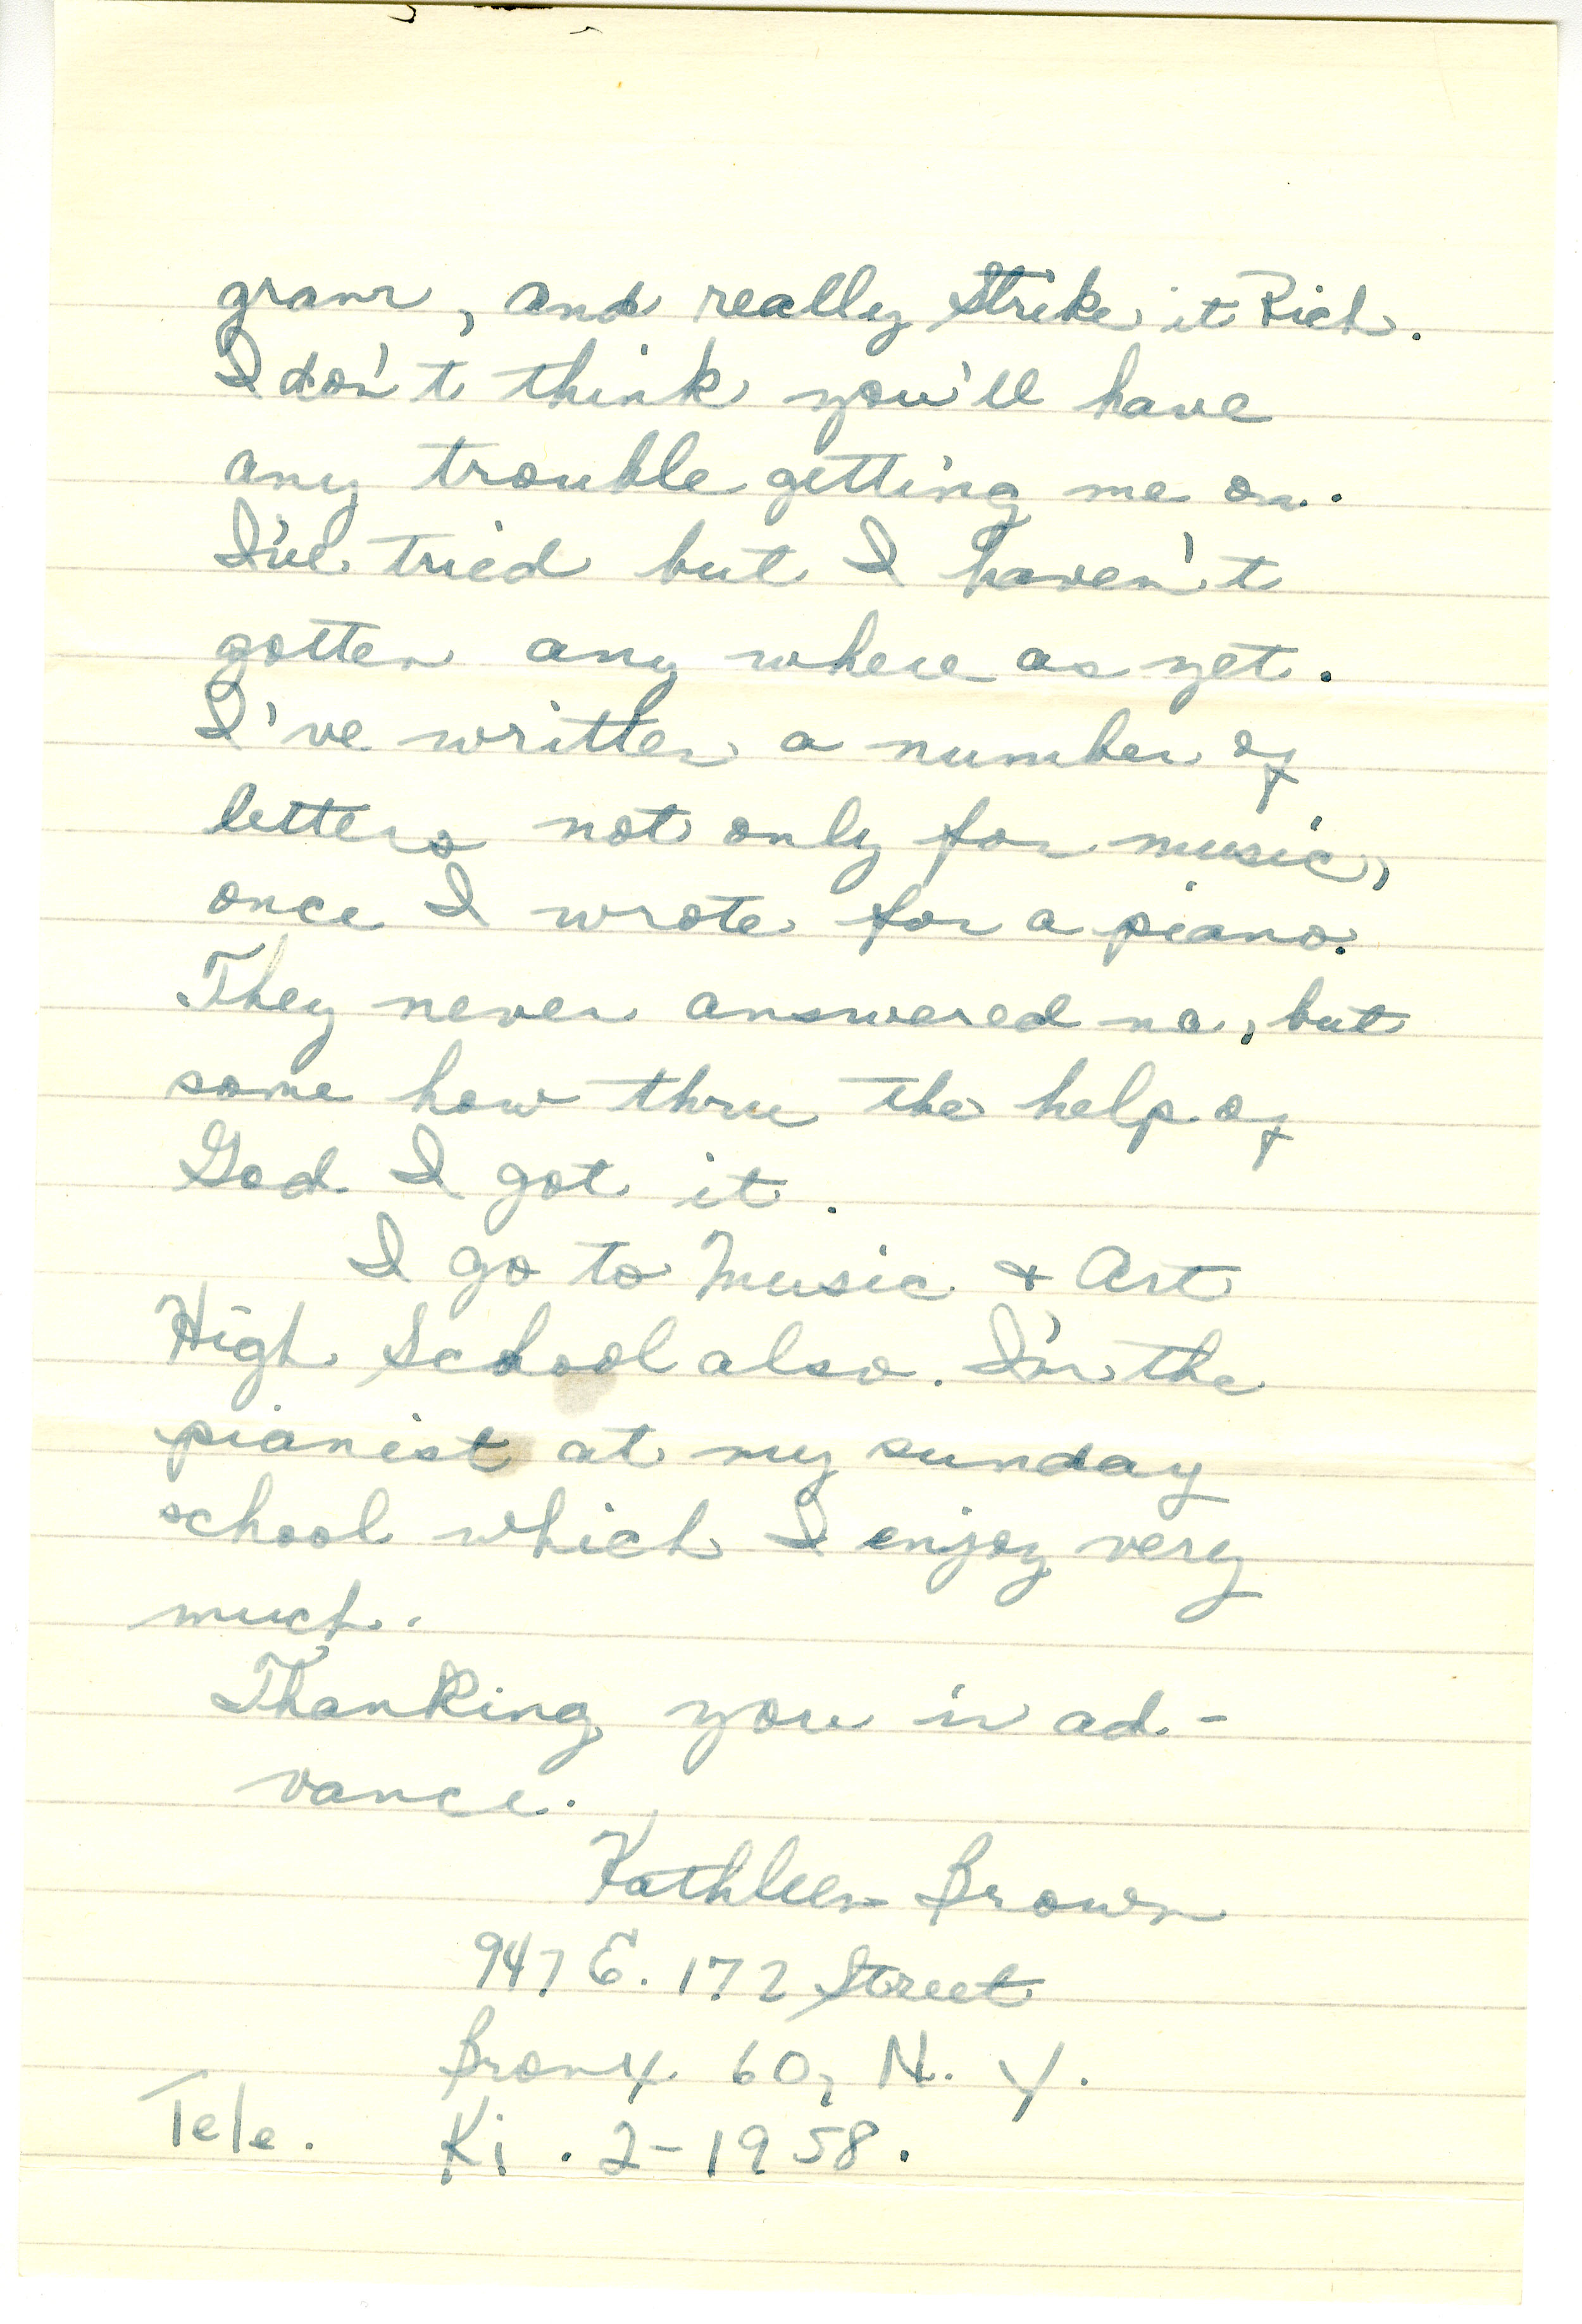 gram, and really Strike it Rich.
I don't think you'll have
any trouble getting me on.
I've tried but I haven't
gotten any where as yet.
I've written a number of
letters not only for music,
once I wrote for a piano.
They never answered no, but
some how thru the help of
God I got it.
I go to Music & Art
High School also. I'm the
pianist at my sunday
school which I enjoy very
much.
Thanking you in ad-
vance.
Kathleen Brown
947 E. 172 Street
Bronx 60, N. Y.
Tele. Ki. 2-1958.